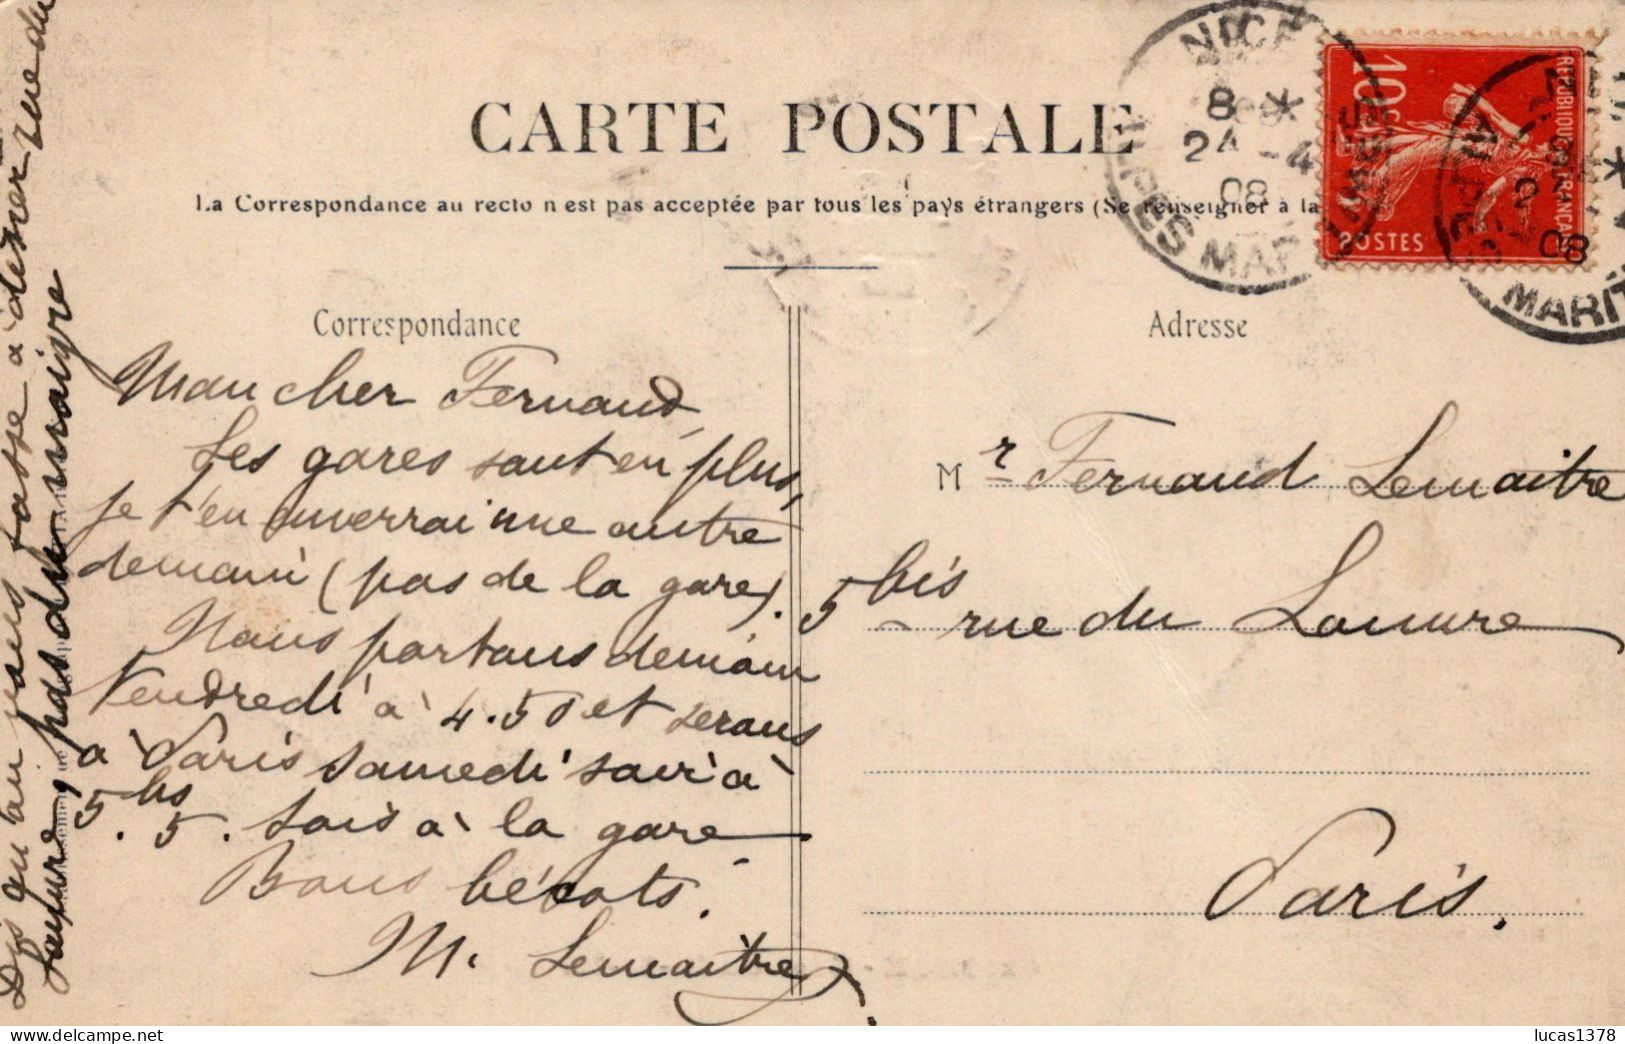 CARTE POSTALE
La Correspondance au recto n'est pas acceptée par tous les pays étrangers (Se renseigner à la
Correspondance
Mon cher Fernand,
Les gares sont en plus,
je t'en enverrai une autre
demain (pas de la gare).
Nous partons demain
Vendredi à 4.50 et serons
à Paris samedi soir à
5.bis 5. Sois à la gare
Bons bécots.
M. Lemaitre
Dis qu'on vous fasse à dîner rue du
Louvre, pas du maigre
Adresse
Mr Fernand Lemaitre
5 bis rue du Louvre
Paris.
NICE
8 *
24 -4
08
ALPES MARITIMES
REPUBLIQUE FRANÇAISE
10c
POSTES
08
ALPES MARIT
lucas1378